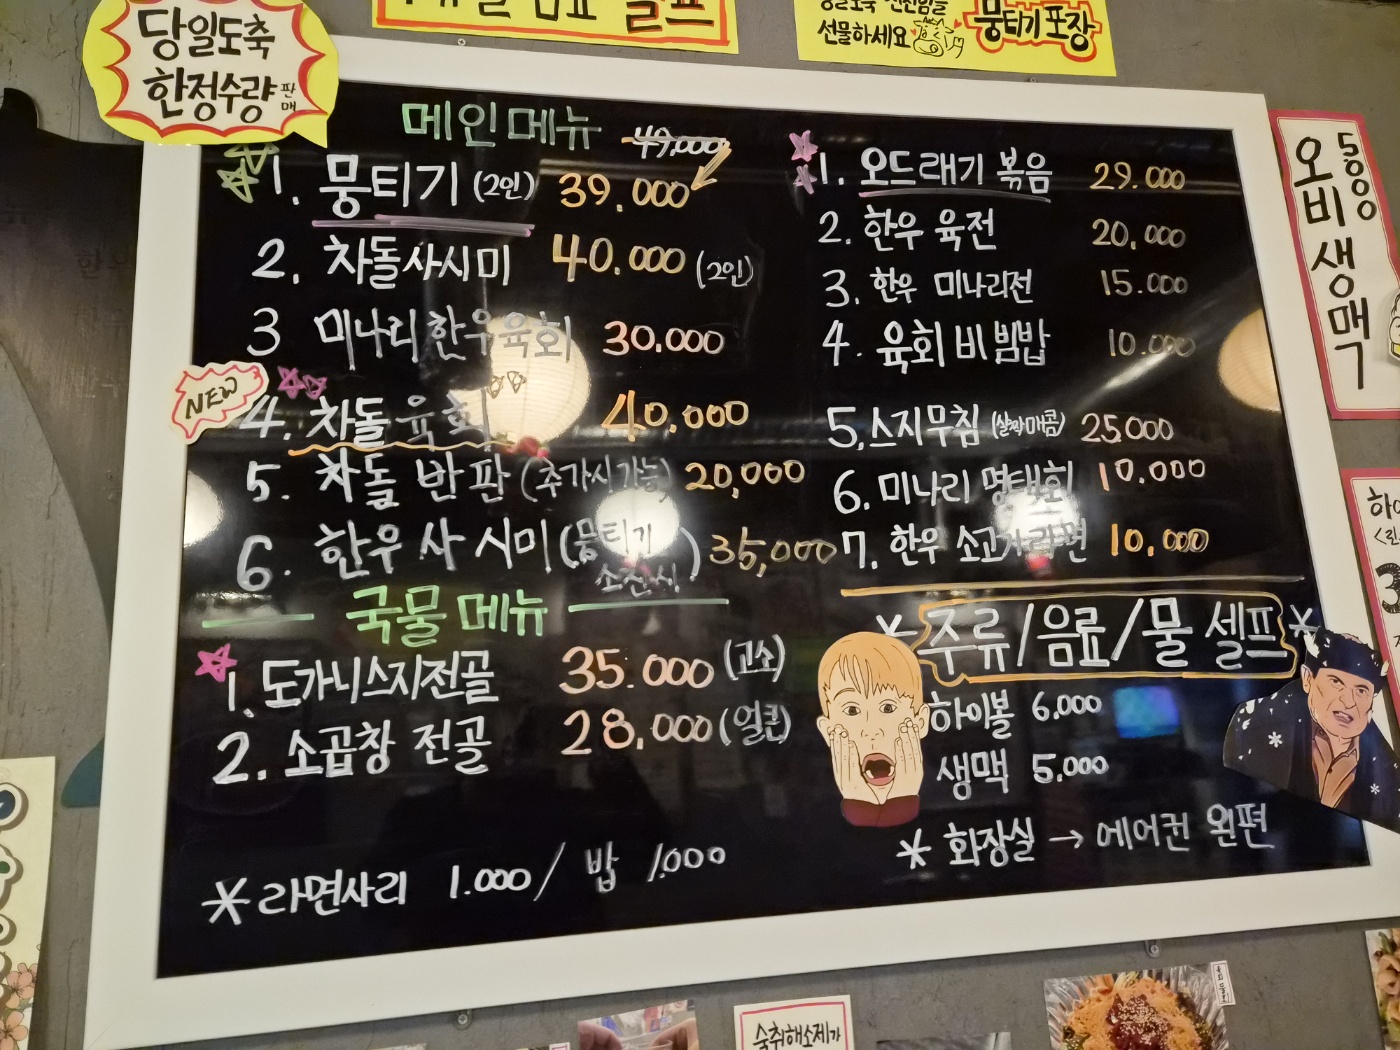 당일도축
한정수량 판매
선물하세요
뭉티기 포장
메인메뉴
49,000
1. 뭉티기 (2인) 39.000
2. 차돌사시미 40.000 (2인)
3 미나리한우육회 30.000
NEW
4. 차돌육회 40.000
5. 차돌 반판 (추가시가능) 20,000
6. 한우 사시미 (뭉티기 소진시) 35,000
국물메뉴
1. 도가니스지전골 35.000 (고소)
2. 소곱창 전골 28,000 (얼큰)
*라면사리 1.000/ 밥 1.000
1. 오드래기 볶음 29.000
2. 한우 육전 20,000
3. 한우 미나리전 15.000
4. 육회비빔밥 10.000
5.스지무침 (살짝매콤) 25.000
6. 미나리 명태회 10.000
7. 한우 소고기라면 10.000
* 주류/음료/물 셀프 *
하이볼 6,000
생맥 5,000
* 화장실 → 에어컨 왼편
오비생맥
5000
숙취해소제가